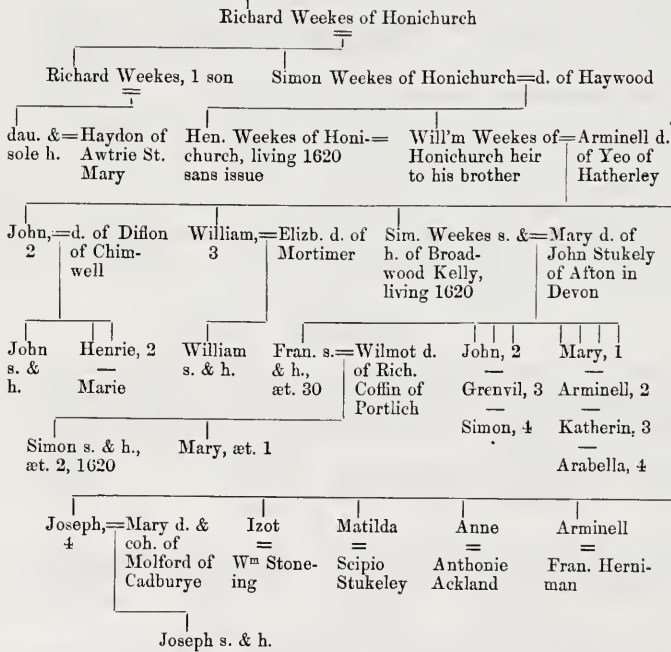 Richard Weekes of Honichurch
=
Richard Weekes, 1 son
=
Simon Weekes of Honichurch=d. of Haywood
dau. &=Haydon of
sole h. Awtrie St.
Mary
Hen. Weekes of Honi-=
church, living 1620
sans issue
Will'm Weekes of=Arminell d.
Honichurch heir of Yeo of
to his brother Hatherley
John,=d. of Diflon
2 of Chim-
well
William,=Elizb. d. of
3 Mortimer
Sim. Weekes s. &=Mary d. of
h. of Broad- John Stukely
wood Kelly, of Afton in
living 1620 Devon
John
s. &
h.
Henrie, 2
—
Marie
William
s. & h.
Fran. s.=Wilmot d.
& h., of Rich.
æt. 30 Coffin of
Portlich
John, 2
—
Grenvil, 3
—
Simon, 4
Mary, 1
—
Arminell, 2
—
Katherin, 3
—
Arabella, 4
Simon s. & h.,
æt. 2, 1620
Mary, æt. 1
Joseph,=Mary d. &
4 coh. of
Molford of
Cadburye
Izot
=
Wm Stone-
ing
Matilda
=
Scipio
Stukeley
Anne
=
Anthonie
Ackland
Arminell
=
Fran. Herni-
man
Joseph s. & h.